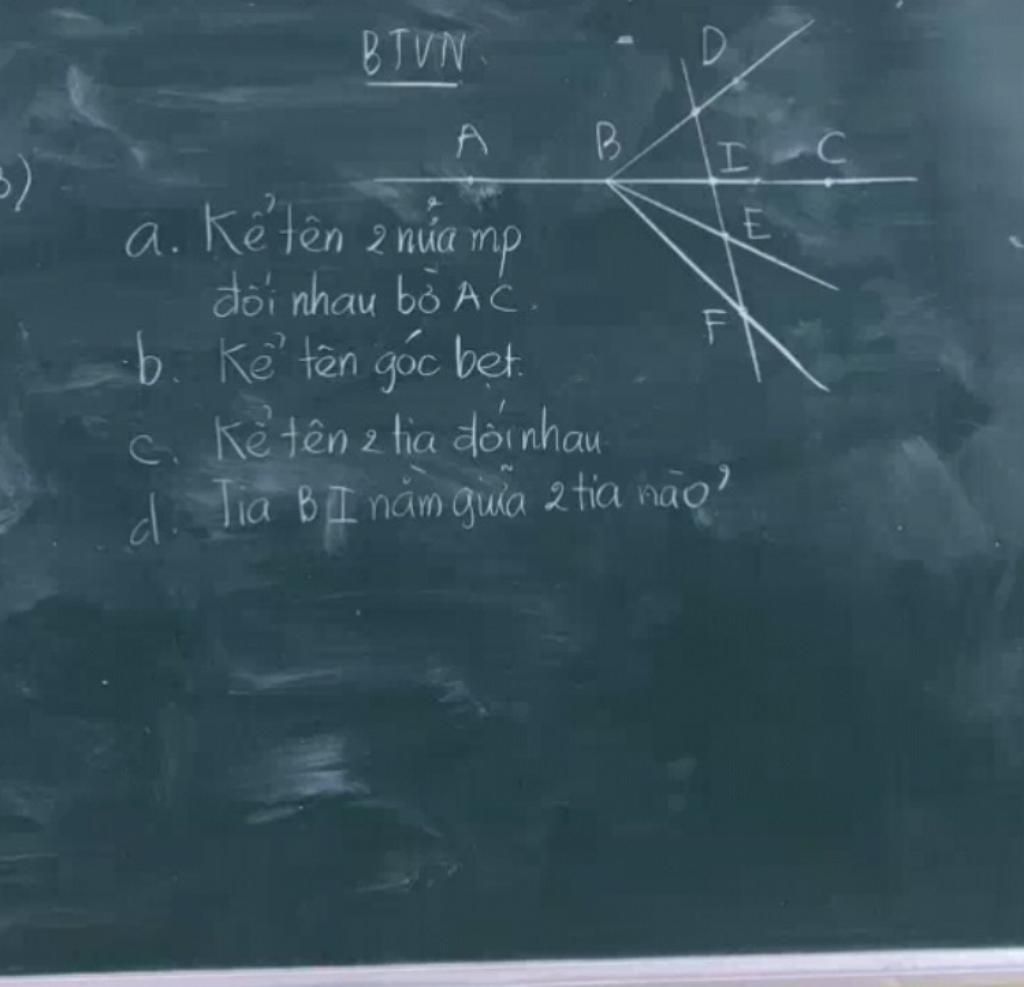 BTVN
D
A B I C
3)
a. Kể tên 2 nửa mp
E
đối nhau bờ AC.
F
b. Kể tên góc bẹt.
c. Kể tên 2 tia đối nhau
d. Tia BI nằm giữa 2 tia nào?